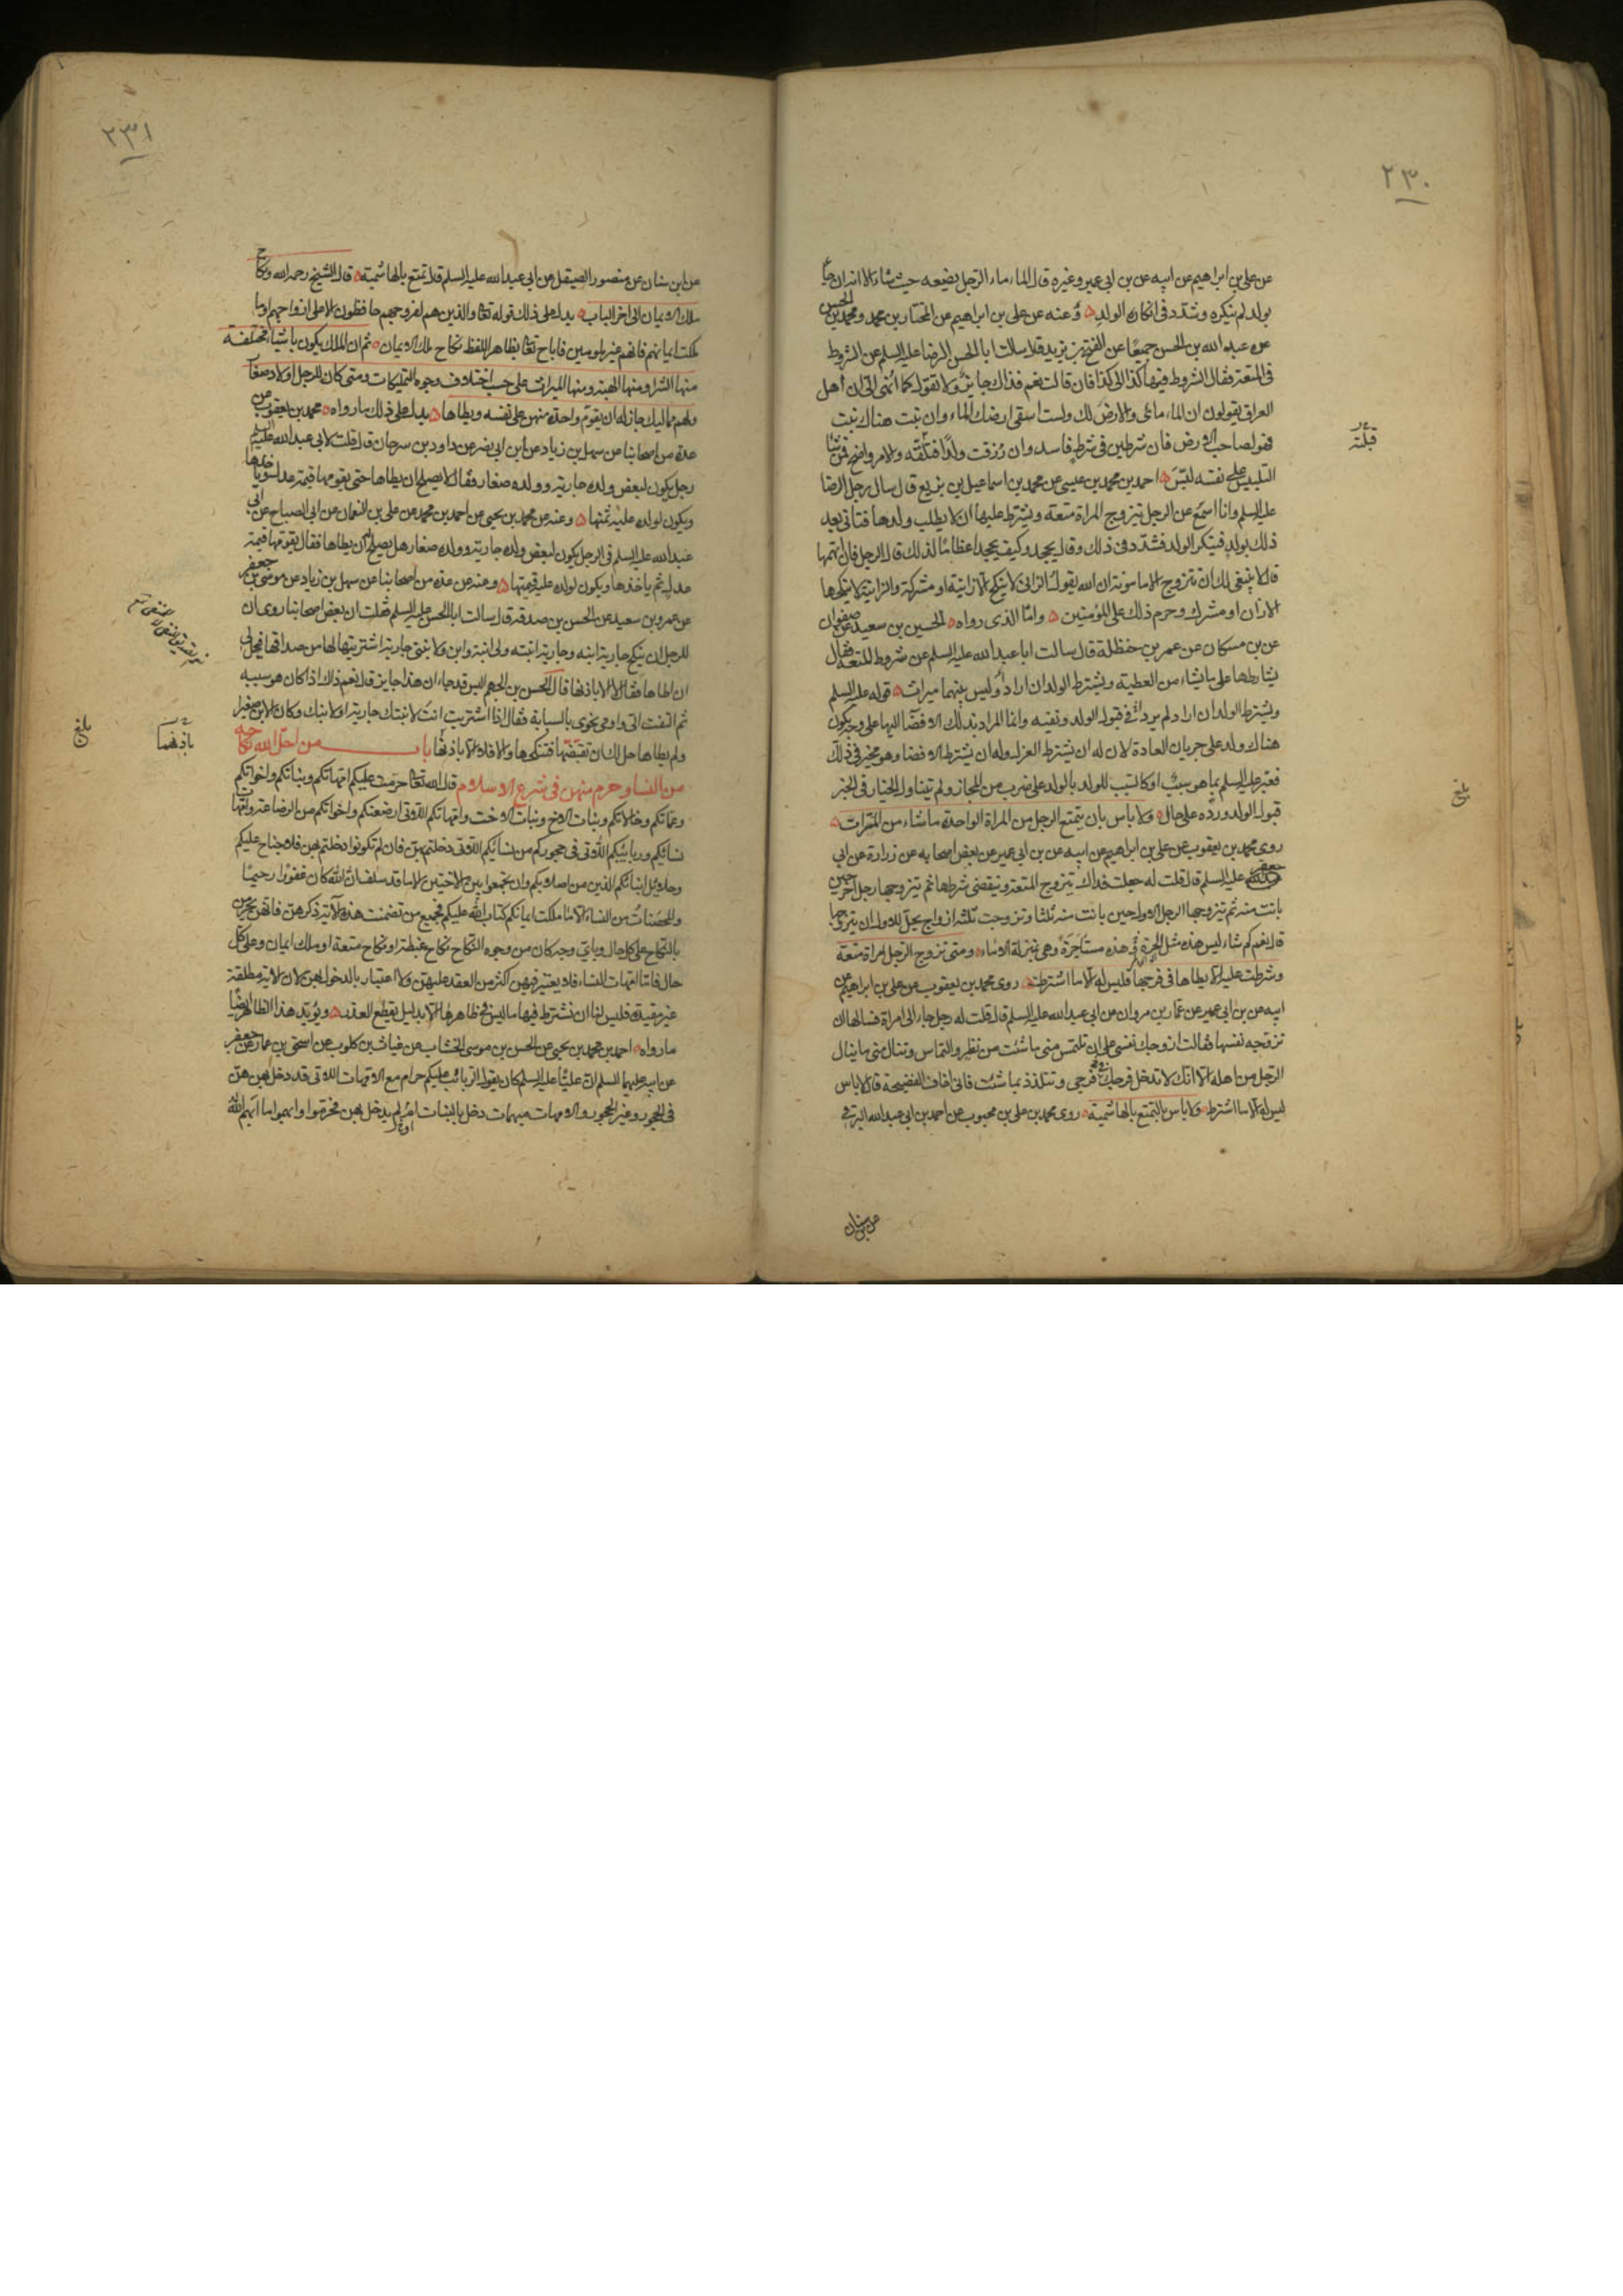 ٢٣٠
عن علي بن ابراهيم عن ابيه عن بن ابي عمير وغيره قال الماء ماء الرجل يضعه حيث شاء الا انه ان جاء
بولد لم ينكره وشدد في انكار الولد وعنه عن علي بن ابراهيم عن المختار بن محمد ومحمد بن الحسن
عن عبد الله بن الحسن جميعا عن الفتح بن يزيد قال سالت ابا الحسن الرضا عليه السلم عن الشروط
في المتعة فقال الشروط فيها كذا الى كذا فان قالت نعم فذاك جايز ولا تقول كما انهى الى ان اهل
العراق يقولون ان الماء مائي والارض لك ولست اسقي ارضك الماء وان نبت هناك نبت
فهو لصاحب الارض فان شرطين في شرط فاسد وان رزقت ولدا قبلته والامر واضح فمن شاء
التلبيس على نفسه لبس احمد بن محمد بن عيسى عن محمد بن اسماعيل بن بزيع قال سال رجل الرضا
عليه السلم وانا اسمع عن الرجل تيزوج المراة متعة ويشترط عليها ان لا يطلب ولدها فتاتي بعد
ذلك بولد فينكر الولد فشدد في ذلك وقال يجحد وكيف يجحد اعظاما لذلك قال الرجل فان اتهمها
قال لا ينبغي لك ان تتزوج الا مامونة ان الله يقول الزاني لا ينكح الا زانية او مشركة والزانية لا ينكحها
الا زان او مشرك وحرم ذلك على المؤمنين واما الذي رواه الحسين بن سعيد عن صفوان
عن بن مسكان عن عمر بن حنظلة قال سالت ابا عبد الله عليه السلم عن شروط المتعة فقال
يشارطها على ما يشاء من العطية ويشترط الولد ان اراد وليس بينهما ميراث قوله عليه السلم
ويشترط الولد ان اراد لم يرد انه في قبول الولد ونفيه وانما المراد بذلك الافضا اليها على وجه يكون
هناك ولد على جريان العادة لان له ان يشترط العزل وله ان يشترط الافضاء وهو مخير في ذلك
فعبر عليه السلم بما هو سبب او كالسبب للولد بالولد على ضرب من المجاز ولم تيناول الخيار في الخبر
قبول الولد ورده على حال ولا باس بان يتمتع الرجل من المراة الواحدة ما شاء من المرات
روى محمد بن يعقوب عن علي بن ابراهيم عن ابيه عن بن ابي عمير عن بعض اصحابه عن زرارة عن ابي
جعفر عليه السلم قال قلت له جعلت فداك تيزوج المتعة وينقضي شرطها ثم تيزوجها رجل اخر حين
بانت منه ثم تيزوجها الرجل الاول حين بانت منه ثلثا وتزوجت ثلثة ازواج يحل للاول ان يتزوجها
قال نعم كم شاء ليس هذه مثل الحرة هذه مستاجرة وهي بمنزلة الاماء ومتى تزوج الرجل امراة متعة
وشرطت عليه الا يطاها في فرجها فليس له الا ما اشترطت روى محمد بن يعقوب عن علي بن ابراهيم عن
ابيه عن بن ابي عمير عن عمار بن مروان عن ابي عبد الله عليه السلم قال قلت له رجل جاء الى امراة فسالها ان
تزوجه نفسها فقالت ازوجك نفسي على ان تلتمس مني ما شئت من نظر والتماس وتنال مني ما ينال
الرجل من اهله الا انك لا تدخل فرجك في فرجي وتتلذذ بما شئت فاني اخاف الفضيحة قال لا باس
ليس له الا ما اشترط ولا باس بالتمتع بالهاشمية روى محمد بن علي بن محبوب عن احمد بن ابي عبد الله البرقي
قبلته
بلغ
عن بن سنان
٢٣١
عن ابن سنان عن منصور الصيقل عن ابي عبد الله عليه السلم قال تمتع بالهاشمية قال الشيخ رحمه الله ونكاح
ملك الايمان الى اخر الباب يدل على ذلك قوله تعا والذين هم لفروجهم حافظون الا على ازواجهم او ما
ملكت ايمانهم فانهم غير ملومين فاباح تعا بظاهر اللفظ نكاح ملك الايمان ثم ان الملك يكون باشياء مختلفة
منها الشرا ومنها الهبة ومنها الميراث على حسب اختلاف وجوه التمليكات ومتى كان للرجل اولاد صغار
ولهم مماليك جاز له ان يقوم واحدة منهن على نفسه ويطاها يدل على ذلك ما رواه محمد بن يعقوب عن
عدة من اصحابنا عن سهل بن زياد عن ابن ابي نصر عن داود بن سرحان قال قلت لابي عبد الله عليه السلم
رجل يكون لبعض ولده جارية وولده صغار فقال لا يصلح ان يطاها حتى يقومها قيمة عدل ثم ياخذها
ويكون لولده عليه ثمنها وعنه عن محمد بن يحيى عن احمد بن محمد عن علي بن النعمان عن ابي الصباح عن ابي
عبد الله عليه السلم في الرجل يكون لبعض ولده جارية وولده صغار هل يصلح ان يطاها فقال يقومها قيمة
عدل ثم ياخذها ويكون لولده عليه قيمتها وعنه عن عدة من اصحابنا عن سهل بن زياد عن موسى بن جعفر
عن عمرو بن سعيد عن الحسن بن صدقة قال سالت ابا الحسن عليه السلم فقلت ان بعض اصحابنا روى ان
للرجل ان ينكح جارية ابنه وجارية ابنته ولي ابنة وابن ولابنتي جارية اشتريتها لها من صداقها فيحل لي
ان اطاها فقال لا الا باذنها قال الحسن بن الجهم اليس قد جاء ان هذا جايز قال نعم ذاك اذا كان هو سببه
ثم التفت الي واومى نحوي بالسبابة فقال اذا اشتريت انت لابنتك جارية او لابنك وكان الابن صغيرا
ولم يطاها حل لك ان تقبضها فتنكحها والا فلا الا باذنها باب من احل الله نكاحه
من النساء وحرم منهن في شرع الاسلام قال الله تعا حرمت عليكم امهاتكم وبناتكم واخواتكم
وعماتكم وخالاتكم وبنات الاخ وبنات الاخت وامهاتكم اللاتي ارضعنكم واخواتكم من الرضاعة وامهات
نسائكم وربائبكم اللاتي في حجوركم من نسائكم اللاتي دخلتم بهن فان لم تكونوا دخلتم بهن فلا جناح عليكم
وحلائل ابنائكم الذين من اصلابكم وان تجمعوا بين الاختين الا ما قد سلف ان الله كان غفورا رحيما
والمحصنات من النساء الا ما ملكت ايمانكم كتاب الله عليكم فجميع من تضمنت هذه الآية ذكرهن فانهن يحرمن
بالنكاح على كل حال وباي وجه كان من وجوه النكاح نكاح غبطة او نكاح متعة او ملك ايمان وعلى كل
حال فاما امهات النساء فلا يعتبر فيهن اكثر من العقد عليهن ولا اعتبار بالدخول بهن لان الاية مطلقة
غير مقيدة فليس لنا ان نشترط فيها ما ليس في ظاهرها الا بدليل يقطع العذر ويؤيد هذا الظاهر ايضا
ما رواه احمد بن محمد بن يحيى عن الحسن بن موسى الخشاب عن غياث بن كلوب عن اسحق بن عمار عن جعفر
عن ابيه عليهما السلم ان عليا عليه السلم كان يقول الربائب عليكم حرام مع الامهات اللاتي قد دخل بهن هن
في الحجور وغير الحجور والامهات مبهمات دخل بالبنات او لم يدخل بهن فحرموا وابهموا ما ابهم الله
باذنهما
بلغ